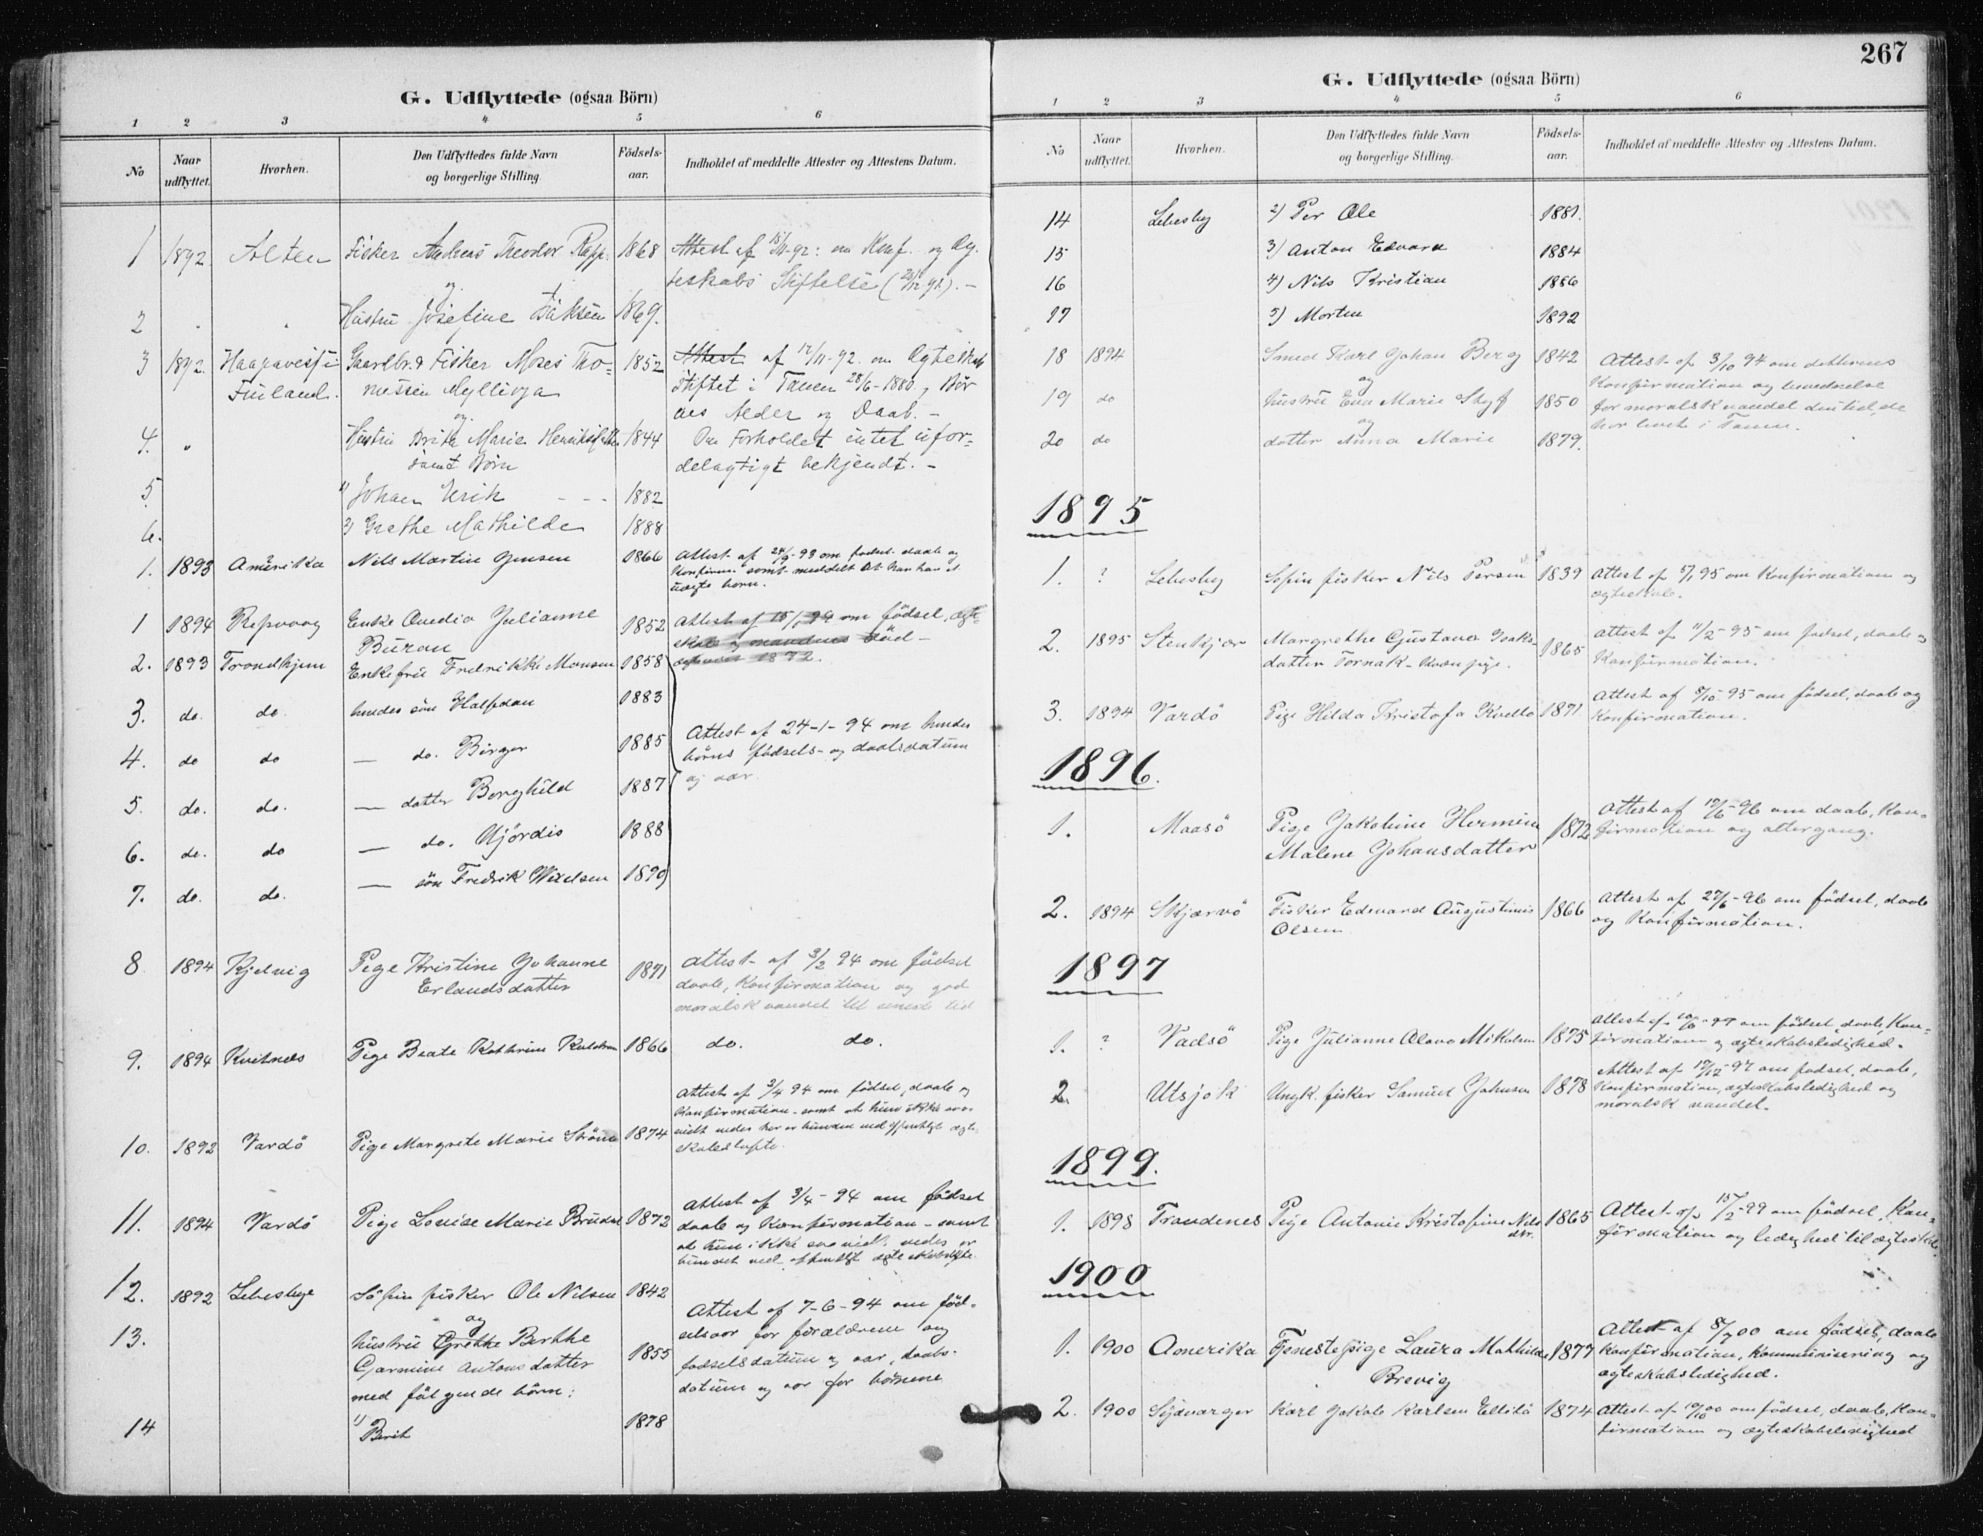 G. Udflyttede (ogsaa Börn)
1 2 3 4 5 6
No
Naar udflyttet.
Hvorhen.
Den Udflyttedes fulde Navn og borgerlige Stilling.
Födsels-aar.
Indholdet af meddelte Attester og Attestens Datum.
1 1892. Alten Fisker Andreas Theodor Rapp. 1868 Attest af 15/11-92: om Konf. og Æg-
og teskabs Stiftelse
2 " " Hustru Josefine 1869.
3 1892. Haapavesi i Gaardbr. & Fisker Moses Tho- 1852 Attest af 17/11-92. om Ægteskab
Finland. massen Myllioja stiftet i Tanen 28/6-1880, Bör
og nes Alder og Daab. -
4. " Hustru Brita Maria 1844 Om Forholdet intet ufor-
samt Börn delagtigt bekjendt. -
5. 1) Johan Erik - - - 1882
6. 2) Grethe Mathilde 1888
1. 1893 Amerika Nils Martin Jensen 1866 Attest af 24/9-93 om fødsel daab og
Konfirm. samt meddelt at han har et
uægte barn.
1 1894 Repvaag Enke Ovedia Julianne 1852 Attest af 15/1 94 om födsel, ægte-
Buran skab og mandens död-
1872.
2. 1893 Trondhjem Enkefru Fredrikke Monsen 1858
3. do. do. hendes sön Halfdan 1883
4. do do — do. Birger 1885 Attest af 24-1-94 om hendes
börns födsels- og daabsdatum
5. do. do. — datter Borghild 1887 og aar.
6. do. do — do. Hjördis 1888
7. do. do. — sön Fredrik 1890
8 1894 Kjelvig Pige Kristine Johanne 1871 Attest af 3/2 94 om födsel
Erlandsdatter daab, Konfirmation og god
moralsk vandel til seneste tid
9. 1894 Kvitnes Pige Beate Kathrine 1866 do. do.
Attest af 3/4 94 om födsel, daab og
Konfirmation - samt at hun ikke
10. 1892 Vardö Pige Margrete Marie 1874 vides her er bunden ved offentligt ægte-
skabslöfte.
11. 1894 Vardö Pige Louise Marie 1872 Attest af 3/4 - 94 om födsel
daab og Konfirmation - samt
at hun ikke vides er
bundet ved offentligt ægteskabslöfte.
12. 1892 Lebesbye Söfin fisker Ole Nilsen 1842
og Attest af 7-6-94 om föd-
13. hustru Grethe Berthe 1855 selsaar for forældrene og
Antonsdatter fødselsdatum og aar, daabs-
med fölgende börn: datum og aar for börnene
14 1) Berit 1878
267
G. Udflyttede (ogsaa Börn)
1 2 3 4 5 6
No
Naar udflyttet.
Hvorhen.
Den Udflyttedes fulde Navn og borgerlige Stilling.
Födsels-aar.
Indholdet af meddelte Attester og Attestens Datum.
14 Lebesby 2) Per Ole 1881.
15 3) Anton Edvard 1884
16 4) Nils Kristian 1886
17 5) Morten 1892
18 1894 Smed Karl Johan Berg 1842 Attest af 3/10 94 om datterens
og Konfirmation og
19 do hustru Eva Marie 1850 for moralsk vandel den tid, de
og har levet i Tanen.
20 do datter Anna Marie 1879.
1895
1. ? Lebesby Söfin fisker Nils Persen 1839 Attest af 95 om Konfirmation og
ægteskab.
2. 1895 Stenkjær Margrethe Gustava Isaks- 1865 Attest af 11/2-95 om födsel, daab og
datter Tornak - Kvænpige. Konfirmation.
3. 1894 Vardö Pige Hilda Kristofa 1871 Attest af 8/10-95 om födsel, daab og
Konfirmation.
1896.
1. Maasö Pige Jakobine Hermine 1872 Attest af 96 om daab, Kon-
Malene Johansdatter firmation og altergang.
2. 1894 Skjærvö Fisker Edevard Augustinus 1866 Attest af 27/6-96 om födsel, daab
Olsen og Konfirmation.
1897
1. ? Vadsö Pige Julianne Olava Mikalsen 1875 Attest af 97 om födsel, daab, Kon-
firmation og ægteskabsledighed.
2. Utsjok Ungk. fisker Samuel Johnsen 1878 Attest af 17/12-97 om födsel, daab,
Konfirmation, ægteskabsledighed og
moralsk vandel.
1899.
1. 1898 Trondenes Pige Antonie Kristofine Nils 1865 Attest af 15/2-99 om födsel, Kon-
dtr. firmation og ledighed til ægteskab.
1900
1. 1900 Amerika Tjenestepige Laura Mathilde 1877 Attest af 00 om födsel, daab
Brevig Konfirmation, Kommunisering og
ægteskabsledighed.
2. 1900 Sydvarger Karl Jakob Karlsen 1874 Attest af 19/10 00 om födsel, daab, Kon-
firmation og ægteskabsledighed